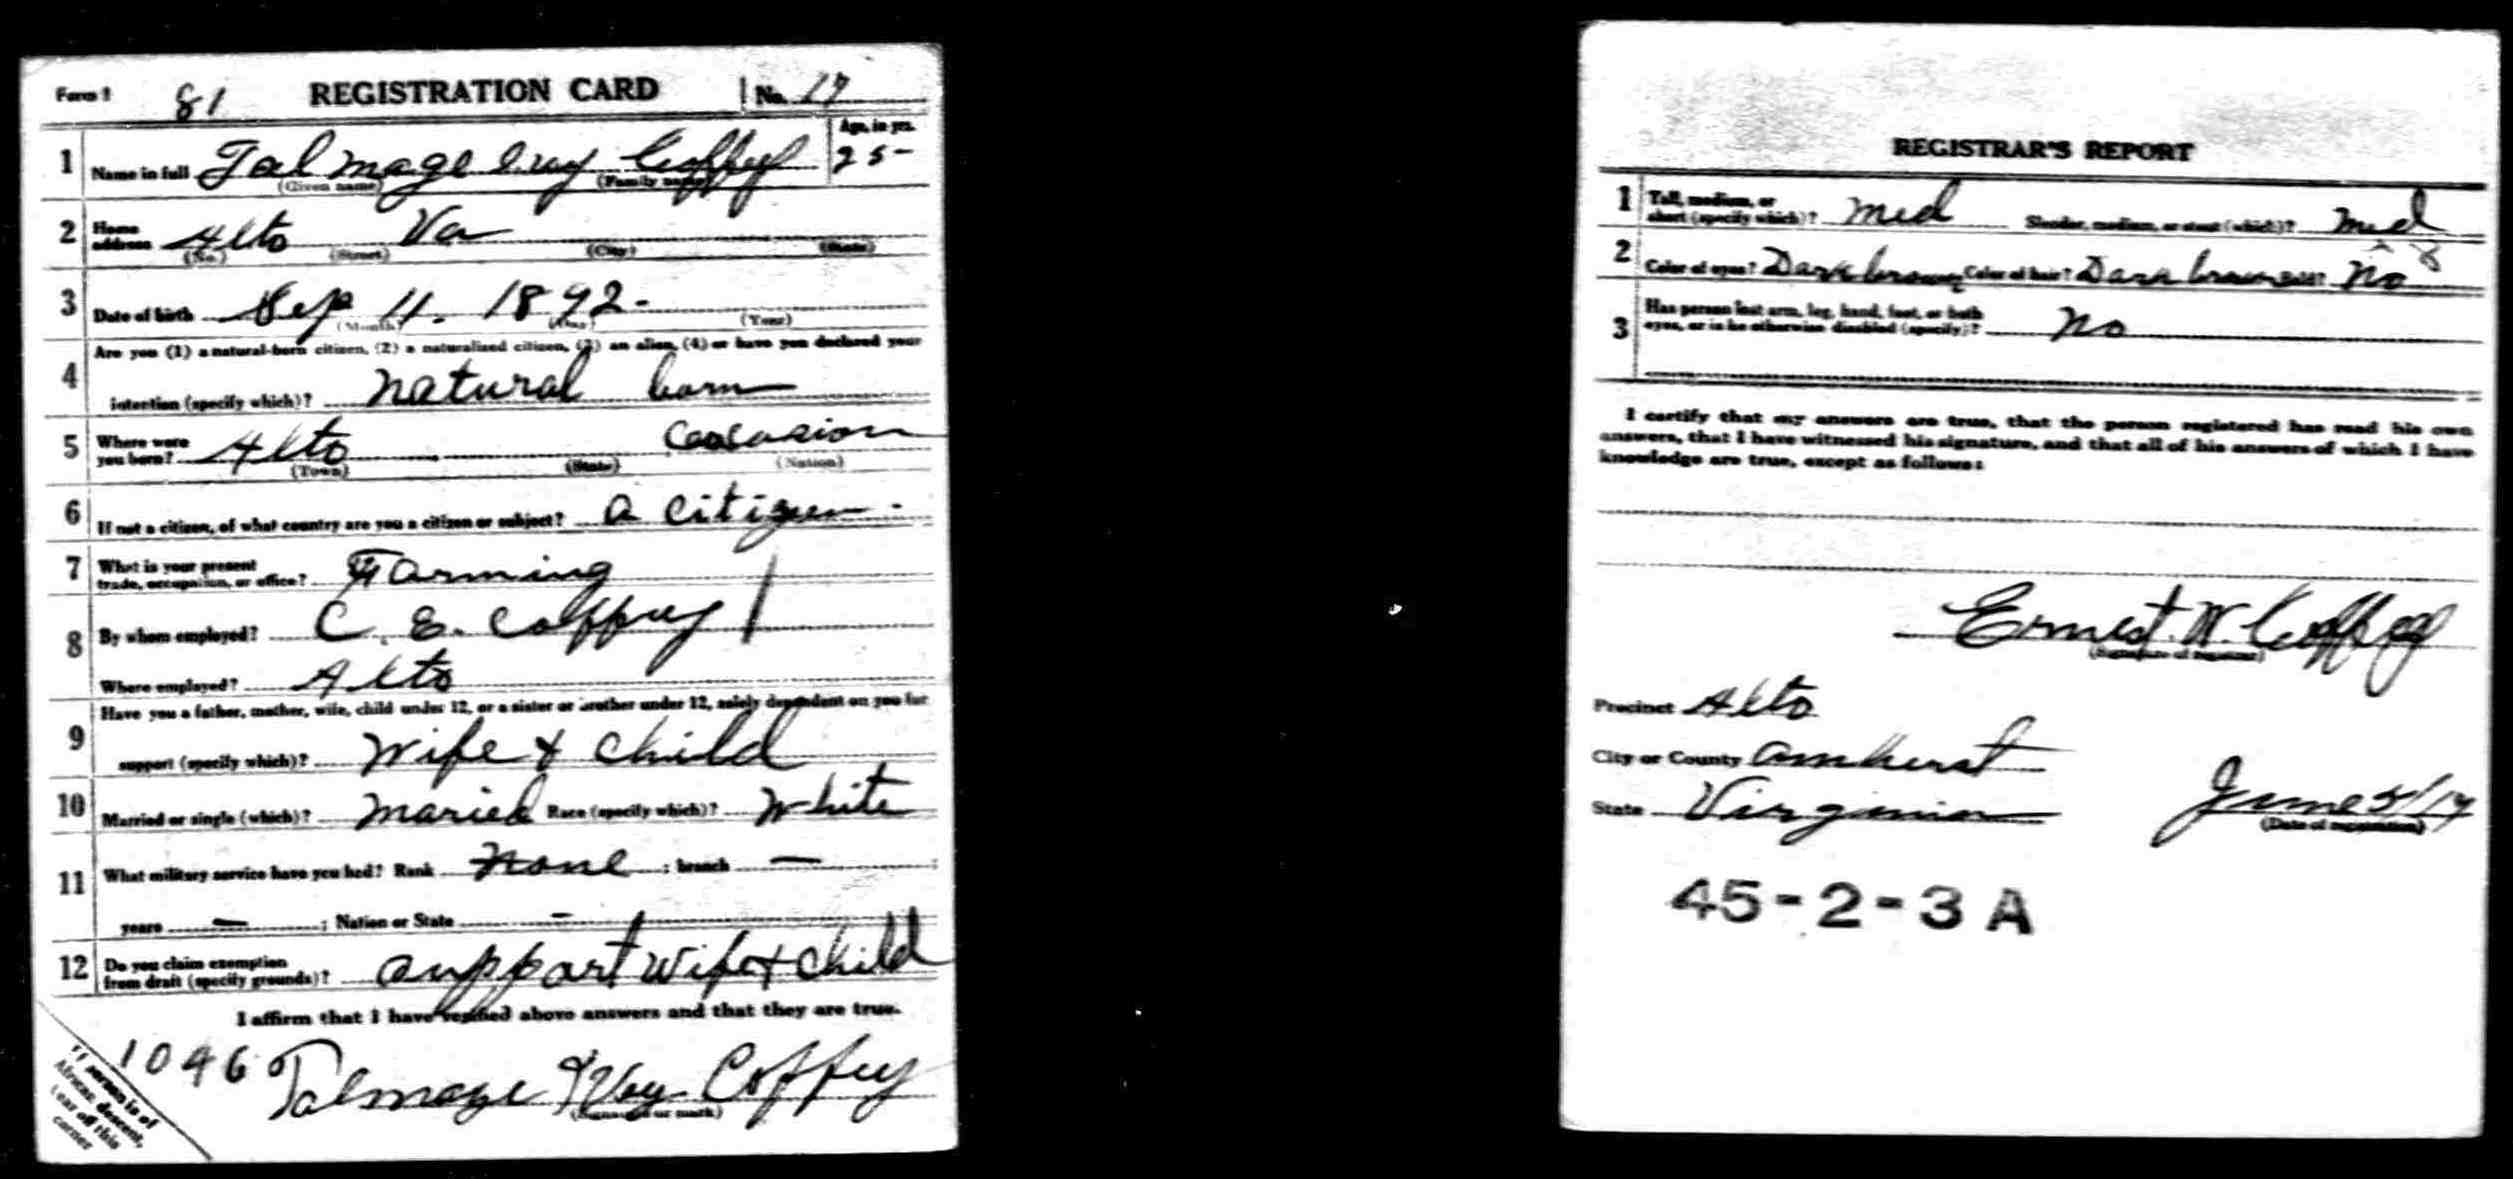 Form 1 81 REGISTRATION CARD No. 17
1 Name in full Talmage Ivy Coffey Age, in yrs. 25-
(Given name) (Family name)
2 Home address Alto Va
(No.) (Street) (City) (State)
3 Date of birth Sep 11. 1892-
(Month) (Day) (Year)
Are you (1) a natural-born citizen, (2) a naturalized citizen, (3) an alien, (4) or have you declared your
4 intention (specify which)? natural born
5 Where were you born? Alto Caucasion
(Town) (State) (Nation)
6 If not a citizen, of what country are you a citizen or subject? a citizen -
7 What is your present trade, occupation, or office? Farming
8 By whom employed? C. E. Coffey
Where employed? Alto
Have you a father, mother, wife, child under 12, or a sister or brother under 12, solely dependent on you for
9 support (specify which)? Wife & child
10 Married or single (which)? Maried Race (specify which)? White
11 What military service have you had? Rank None ; branch —
years — ; Nation or State —
12 Do you claim exemption from draft (specify grounds)? Support wife & child
I affirm that I have verified above answers and that they are true.
1046 Talmage Ivy Coffey
(Signature or mark)
If person is of
African descent,
tear off this
corner
REGISTRAR'S REPORT
1 Tall, medium, or short (specify which)? Med Slender, medium, or stout (which)? Med
2 Color of eyes? Dark brown Color of hair? Dark brown No
3 Has person lost arm, leg, hand, foot, or both
eyes, or is he otherwise disabled (specify)? No
I certify that my answers are true, that the person registered has read his own
answers, that I have witnessed his signature, and that all of his answers of which I have
knowledge are true, except as follows:
Ernest W. Coffey
(Signature of registrar)
Precinct Alto
City or County Amherst
State Virginia June 5/17
(Date of registration)
45-2-3 A